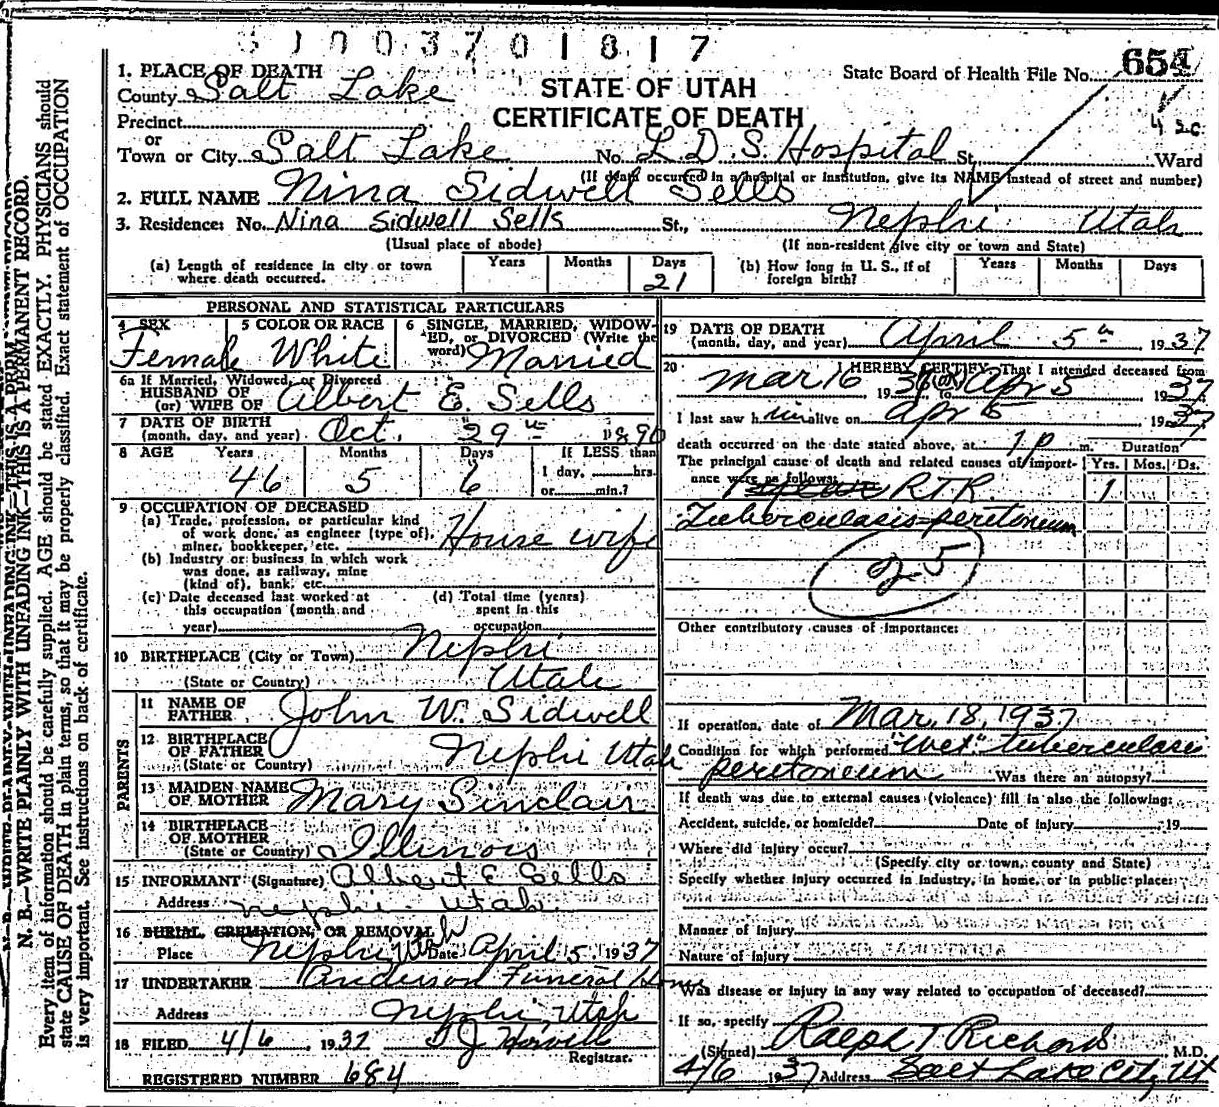 S J 0 0 3 7 0 1 8 1 7
1. PLACE OF DEATH
County Salt Lake
STATE OF UTAH
CERTIFICATE OF DEATH
State Board of Health File No. 654
Precinct
or
Town or City Salt Lake No. L.D.S. Hospital St. Ward
(If death occurred in a hospital or institution, give its NAME instead of street and number)
2. FULL NAME Nina Sidwell Sells
3. Residence: No. Nina Sidwell Sells St., Nephi Utah
(Usual place of abode) (If non-resident give city or town and State)
(a) Length of residence in city or town where death occurred. Years Months Days 21
(b) How long in U. S., if of foreign birth? Years Months Days
PERSONAL AND STATISTICAL PARTICULARS
4 SEX Female
5 COLOR OR RACE White
6 SINGLE, MARRIED, WIDOWED, or DIVORCED (Write the word) Married
6a If Married, Widowed, or Divorced
HUSBAND OF
(or) WIFE OF Albert E. Sells
7 DATE OF BIRTH
(month, day, and year) Oct. 29th 1890
8 AGE Years 46 Months 5 Days 6
If LESS than
1 day, hrs.
or min.?
9 OCCUPATION OF DECEASED
(a) Trade, profession, or particular kind
of work done, as engineer (type of),
miner, bookkeeper, etc. House wife
(b) Industry or business in which work
was done, as railway, mine
(kind of), bank, etc.
(c) Date deceased last worked at
this occupation (month and
year)
(d) Total time (years)
spent in this
occupation
10 BIRTHPLACE (City or Town) Nephi
(State or Country) Utah
PARENTS
11 NAME OF
FATHER John W. Sidwell
12 BIRTHPLACE
OF FATHER
(State or Country) Nephi Utah
13 MAIDEN NAME
OF MOTHER Mary Sinclair
14 BIRTHPLACE
OF MOTHER
(State or Country) Illinois
15 INFORMANT (Signature) Albert E Sells
Address Nephi Utah
16 BURIAL, CREMATION, OR REMOVAL
Place Nephi Utah Date April 5 1937
17 UNDERTAKER Anderson Funeral Home
Address Nephi Utah
18 FILED 4/6 1937
Registrar.
REGISTERED NUMBER 684
19 DATE OF DEATH
(month, day, and year) April 5th, 1937
20 I HEREBY CERTIFY, That I attended deceased from
Mar 16 19 to Apr 5 1937
I last saw h alive on Apr 5 1937
death occurred on the date stated above, at 1 p m. Duration
The principal cause of death and related causes of importance were as follows: Yrs. Mos. Ds.
RTR 1
Tuberculasis peritoneum
25
Other contributory causes of importance:
If operation, date of Mar. 18, 1937
Condition for which performed "Wet" tuberculasis
peritoneum Was there an autopsy?
If death was due to external causes (violence) fill in also the following:
Accident, suicide, or homicide? Date of injury 19
Where did injury occur?
(Specify city or town, county and State)
Specify whether injury occurred in industry, in home, or in public place:
Manner of injury
Nature of injury
Was disease or injury in any way related to occupation of deceased?
If so, specify
(Signed) Ralph T Richards M.D.
4/6 1937 Address Salt Lake City Ut
N. B.—WRITE PLAINLY WITH UNFADING INK—THIS IS A PERMANENT RECORD.
Every item of information should be carefully supplied. AGE should be stated EXACTLY. PHYSICIANS should
state CAUSE OF DEATH in plain terms, so that it may be properly classified. Exact statement of OCCUPATION
is very important. See instructions on back of certificate.